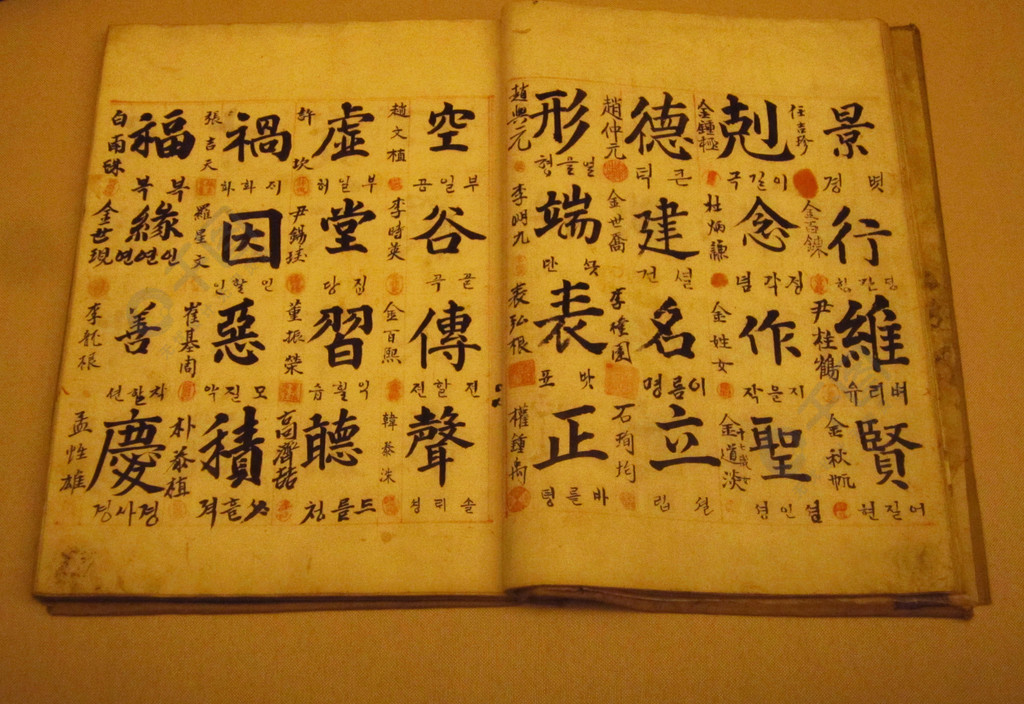 景 볏 경
任吉珍
行
金百鍊
維 벼리유
尹桂鶴
賢 어질 현
金秋
剋 이길 극
金鍾極
念 념
杜炳謙
作 지을 작
金姓女
聖 성인 성
金道淡
德 큰 덕
趙仲元
建 셜 건
金世喬
名 이름명
李種國
立 셜 립
石珣均
形 얼을형
趙興元
端 단
李明九
表 밧 표
表弘根
正 바를 정
權鍾
空 부일공
趙文植
谷 골 곡
李時英
傳 전할 전
金百熙
聲 소리 성
韓泰洙
虛 부일허
許坎
堂 집 당
尹錫
習 익힐 습
董振榮
聽 드를 청
高濟喆
禍 지화 화
張吉天
因 인할 인
羅星文
惡 모진 악
崔基周
積
朴泰植
福 복
白雨
緣 인연 연
金世現
善 착할 션
李龍根
慶 경사경
孟性雄